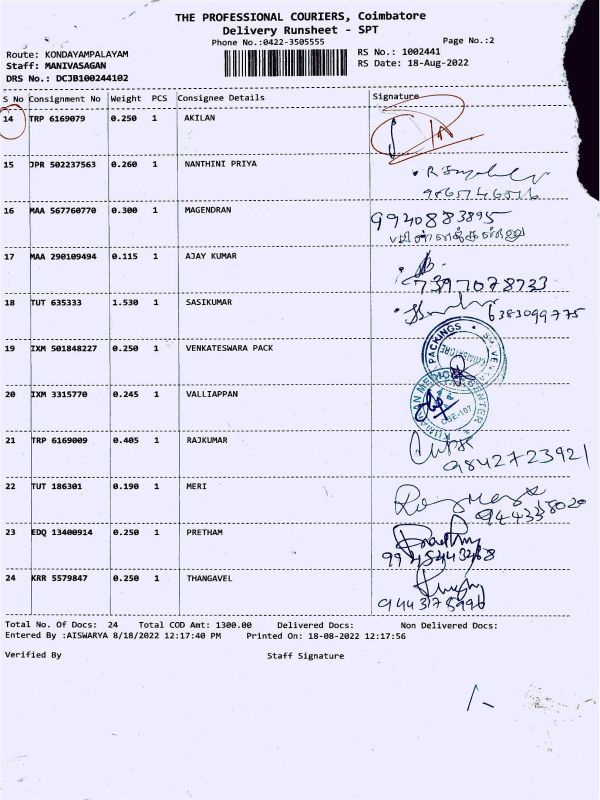 THE PROFESSIONAL COURIERS, Coimbatore
Delivery Runsheet - SPT
Phone No.:0422-3505555 Page No.:2
Route: KONDAYAMPALAYAM RS No.: 1002441
Staff: MANIVASAGAN RS Date: 18-Aug-2022
DRS No.: DCJB100244102
S No Consignment No Weight PCS Consignee Details Signature
14 TRP 6169079 0.250 1 AKILAN
15 JPR 502237563 0.260 1 NANTHINI PRIYA
16 MAA 567760770 0.300 1 MAGENDRAN 9940883895
17 MAA 290109494 0.115 1 AJAY KUMAR
7397078733
18 TUT 635333 1.530 1 SASIKUMAR 6383099775
19 IXM 501848227 0.250 1 VENKATESWARA PACK
PACKINGS
COIMBATORE
20 IXM 3315770 0.245 1 VALLIAPPAN
21 TRP 6169009 0.405 1 RAJKUMAR
9842723921
22 TUT 186301 0.190 1 MERI
23 EDQ 13400914 0.250 1 PRETHAM
24 KRR 5579847 0.250 1 THANGAVEL
Total No. Of Docs: 24 Total COD Amt: 1300.00 Delivered Docs: Non Delivered Docs:
Entered By :AISWARYA 8/18/2022 12:17:40 PM Printed On: 18-08-2022 12:17:56
Verified By Staff Signature